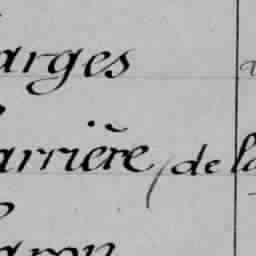 arges
arrière, de la
aron